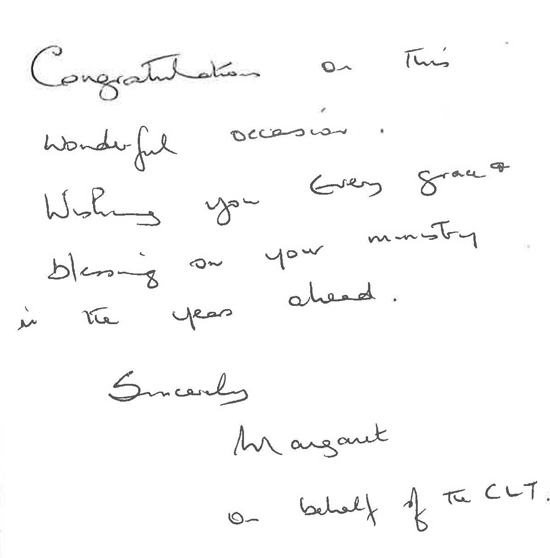 Congratulations on this
wonderful occasion.
Wishing you every grace &
blessing on your ministry
in the years ahead.
Sincerely
Margaret
on behalf of the CLT.